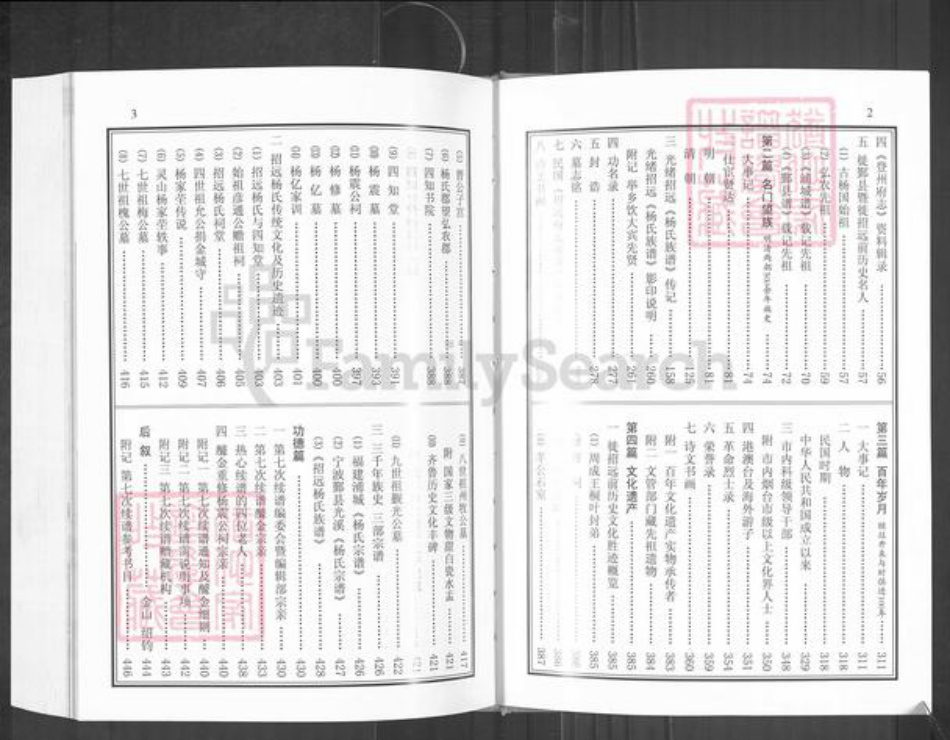 2
四 《登州府志》资料辑录 56
五 徙鄞县暨徙招远前历史名人 57
(1) 古杨国始祖 57
(2) 弘农先祖 59
(3) 《浦城谱》载记先祖 70
(4) 《鄞县谱》载记先祖 72
第二篇 名门望族 74
大事记 74
仕宦贤达 81
明 朝 81
清 朝 125
三 光绪招远《杨氏族谱》传记 158
光绪招远《杨氏族谱》影印说明 260
附记 举乡饮大宾先贤 261
四 功名录 277
五 封 诰 278
六 墓志铭
第三篇 百年岁月 311
一 大事记 311
二 人 物 318
民国时期 318
中华人民共和国成立以来 329
三 市内科级领导干部 348
附 市内烟台市级以上文化界人士 350
四 港澳台及海外游子 351
五 革命烈士录 354
六 荣誉录 359
七 诗文书画 360
附一 百年文化遗产实物承传者 383
附二 文管部门藏先祖遗物 384
第四篇 文化遗产 385
一 徙招远前历史文化胜迹概览 385
(1) 周成王桐叶封弟 385
387
3
(5) 晋公子宫
(6) 杨氏郡望弘农郡 388
(7) 四知书院 388
(9) 四 知 堂 391
(10) 杨 震 墓 393
(11) 杨震公祠 397
(12) 杨 修 墓 400
(13) 杨 亿 墓 400
(14) 杨亿家训 401
二 招远杨氏传统文化及历史遗迹 403
(1) 招远杨氏与四知堂 403
(2) 始祖彦通公赡祖祠 405
(3) 招远杨氏祠堂 406
(4) 四世祖允公捐金城守 407
(5) 杨家茔传说 409
(6) 灵山杨家茔轶事 412
(7) 七世祖梅公墓 415
(8) 七世祖槐公墓 416
(9) 八世祖州牧公墓 417
附 国家三级文物甜白瓷水盂 421
(10) 齐鲁历史文化丰碑 421
(11) 九世祖觐光公墓 422
三 三千年族史 三部宗谱 426
(1) 福建浦城《杨氏宗谱》 426
(2) 宁波鄞县光溪《杨氏宗谱》 427
(3) 《招远杨氏族谱》 428
功德篇 430
一 第七次续谱编委会暨编辑部宗亲 430
二 第七次续谱醵金宗亲 433
三 热心续谱的四位老人 438
四 醵金重修杨震公祠宗亲 440
附记一 第七次续谱通知及醵金细则 440
附记二 第七次续谱需说明事项 442
附记三 第七次续谱赠藏机构 443
后 叙 金山 绍钧 444
附记 第七次续谱参考书目 446
FamilySearch